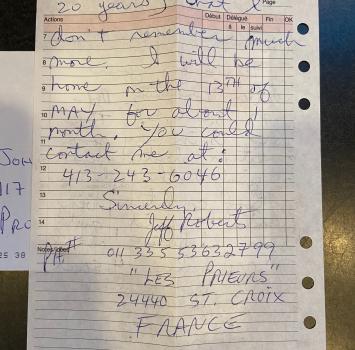 20 years, that I
Page
Actions Début Délégué Fin OK
à le suivi
7 don't remember much
8 more. I will be
9 home on the 13TH of
10 MAY for about 1
11 month. You could
contact me at:
12 413-243-6046
13 Sincerely,
14 Jeff Roberts
Notes/Idées
PH# 011 335 53632799
"LES PRIEURS"
24440 ST. CROIX
FRANCE
JOH
117
PRO
25 38